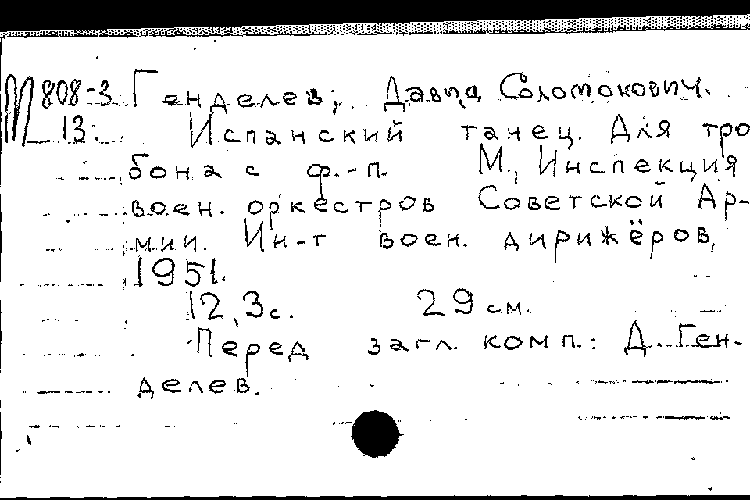 М 808-3 Генделев, Давид Соломонович.
13. Испанский танец. Для тро
бона с ф.-п. М., Инспекция
воен. оркестров Советской Ар-
мии. Ин-т воен. дирижёров,
1951.
12, 3 с. 29 см.
Перед загл. комп.: Д. Ген-
делев.